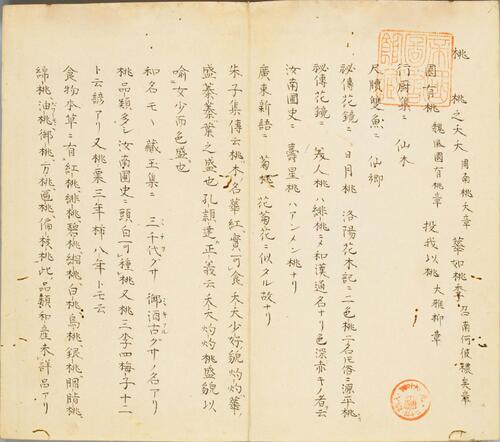 桃 桃之夭夭 周南桃夭章 華如桃李 召南何彼襛矣章
園有桃 魏風園有桃章 投我以桃 大雅抑章
行厨集ニ 仙木
尺牘雙魚ニ 仙郷
秘傳花鏡ニ 日月桃 洛陽花木記ニ 二色桃 二名民俗ニ源平桃
秘傳花鏡ニ 美人桃ハ緋桃ニメ和漢通名ナリ色深赤キノ者ヲ云
汝南圃史ニ 壽星桃ハアンメン桃ナリ
廣東新語ニ 菊桃 花菊花ニ似タル故ナリ
朱子集傳云桃木名華紅實可食夭夭少好貌灼灼華
盛蓁蓁葉之盛也孔頴達正義云夭夭灼灼桃盛貌以
喻女少而色盛也
和名モヽ藏玉集ニ 三千代グサ 御酒古グサノ名アリ
桃品類多シ汝南圃史ニ頭白可種桃又桃三李四梅子十二
ト云諺アリ又桃栗三年柿八年トモ云
食物本草ニ有紅桃緋桃碧桃緗桃白桃烏桃銀桃胭脂桃
綿桃油桃御桃方桃匾桃偏核桃此品類和産未詳品アリ